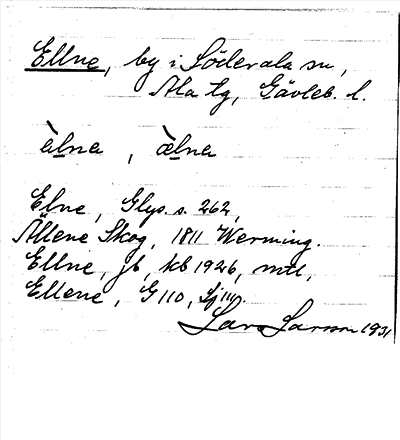 Ellne, by i Söderala sn,
Ala tg, Gävleb. l.
àlna, æ̀lna
Elne, Glys. s. 262,
Ällene Skog, 1811 Werming.
Ellne, jb, kb 1926, mtl,
Ellene, G 110,
Lars Larsson 1931